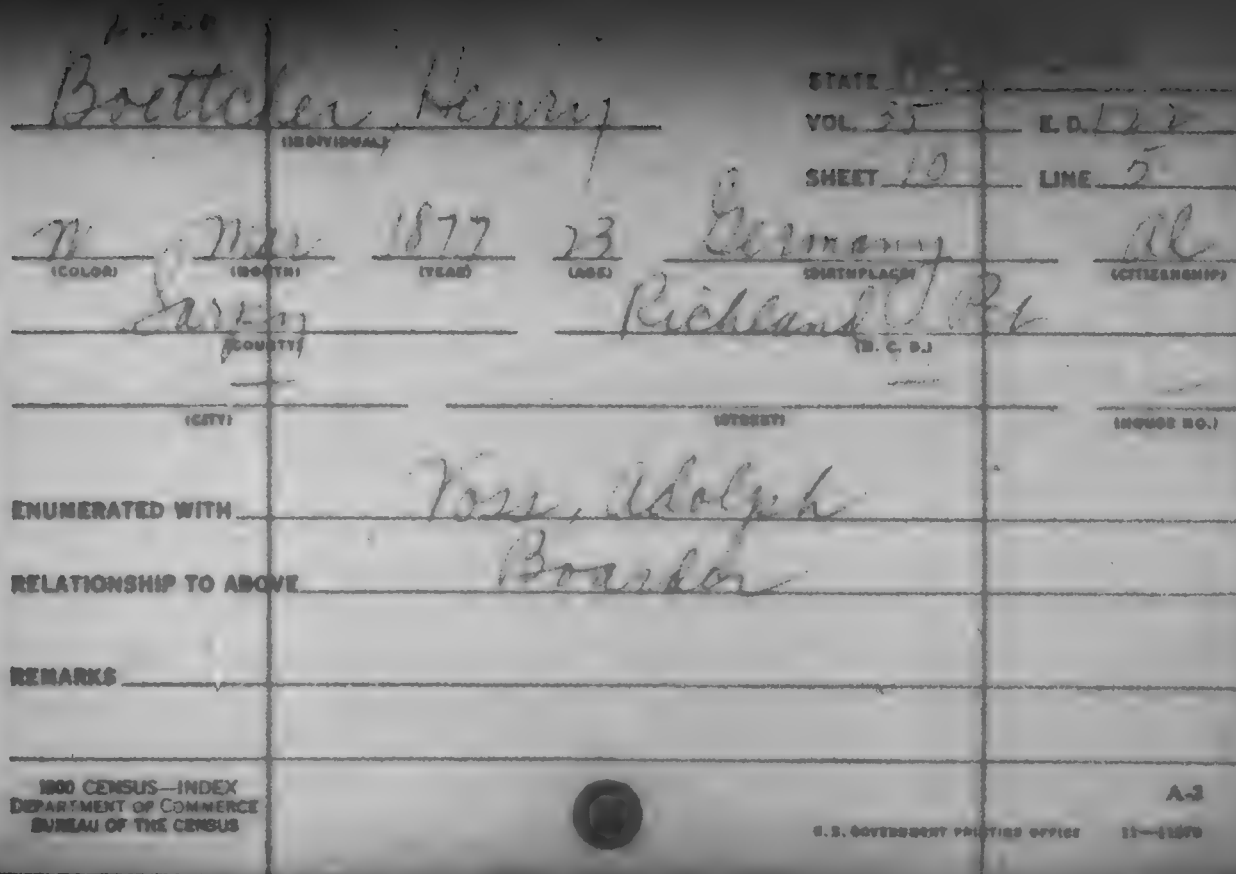 Boettcher, Henry
(INDIVIDUAL)
STATE
VOL. 25 E. D. 122
SHEET 10 LINE 5
W Mar 1877 23 Germany Al
(COLOR) (MONTH) (YEAR) (AGE) (BIRTHPLACE) (CITIZENSHIP)
Sarpy Richland Pct
(COUNTY) (M. C. D.)
— — —
(CITY) (STREET) (HOUSE NO.)
ENUMERATED WITH Voss, Adolph
RELATIONSHIP TO ABOVE Boarder
REMARKS
1900 CENSUS—INDEX
DEPARTMENT OF COMMERCE
BUREAU OF THE CENSUS
A-3
U.S. GOVERNMENT PRINTING OFFICE